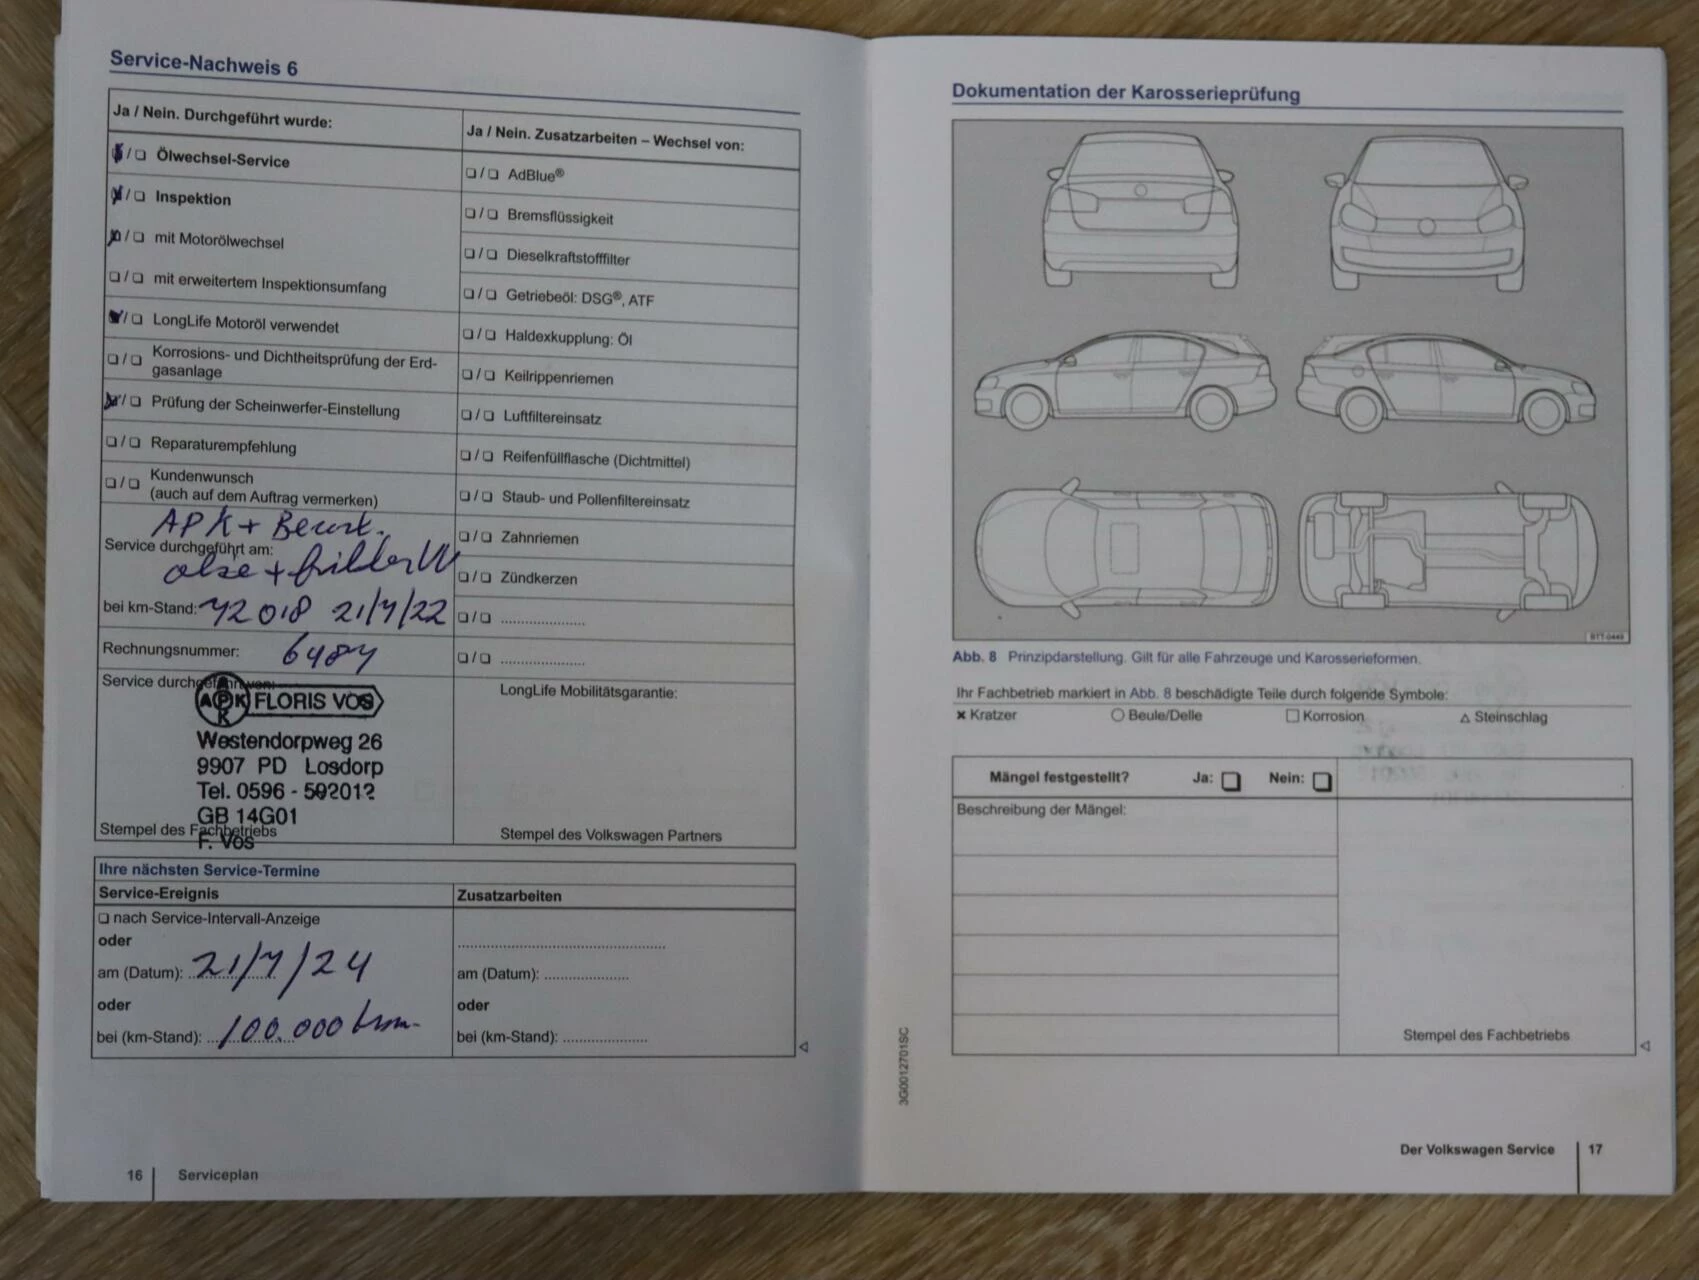 Service-Nachweis 6
Ja / Nein. Durchgeführt wurde:
Ölwechsel-Service
Inspektion
mit Motorölwechsel
mit erweitertem Inspektionsumfang
LongLife Motoröl verwendet
Korrosions- und Dichtheitsprüfung der Erd-
gasanlage
Prüfung der Scheinwerfer-Einstellung
Reparaturempfehlung
Kundenwunsch
(auch auf dem Auftrag vermerken)
APK + Beurt.
Service durchgeführt am:
olie + filter
bei km-Stand: 72018 21/7/22
Rechnungsnummer: 6487
Service durchgeführt von:
APK FLORIS VOS
Westendorpweg 26
9907 PD Losdorp
Tel. 0596 - 592012
GB 14G01
Stempel des Fachbetriebs
F. Vos
Ja / Nein. Zusatzarbeiten – Wechsel von:
AdBlue®
Bremsflüssigkeit
Dieselkraftstofffilter
Getriebeöl: DSG®, ATF
Haldexkupplung: Öl
Keilrippenriemen
Luftfiltereinsatz
Reifenfüllflasche (Dichtmittel)
Staub- und Pollenfiltereinsatz
Zahnriemen
Zündkerzen
LongLife Mobilitätsgarantie:
Stempel des Volkswagen Partners
Ihre nächsten Service-Termine
Service-Ereignis
nach Service-Intervall-Anzeige
oder
am (Datum): 21/7/24
oder
bei (km-Stand): 100.000 km
Zusatzarbeiten
am (Datum):
oder
bei (km-Stand):
16 Serviceplan
Dokumentation der Karosserieprüfung
BTT-0449
Abb. 8 Prinzipdarstellung. Gilt für alle Fahrzeuge und Karosserieformen.
Ihr Fachbetrieb markiert in Abb. 8 beschädigte Teile durch folgende Symbole:
× Kratzer ○ Beule/Delle □ Korrosion △ Steinschlag
Mängel festgestellt? Ja: Nein:
Beschreibung der Mängel:
Stempel des Fachbetriebs
3G0012701SC
Der Volkswagen Service 17